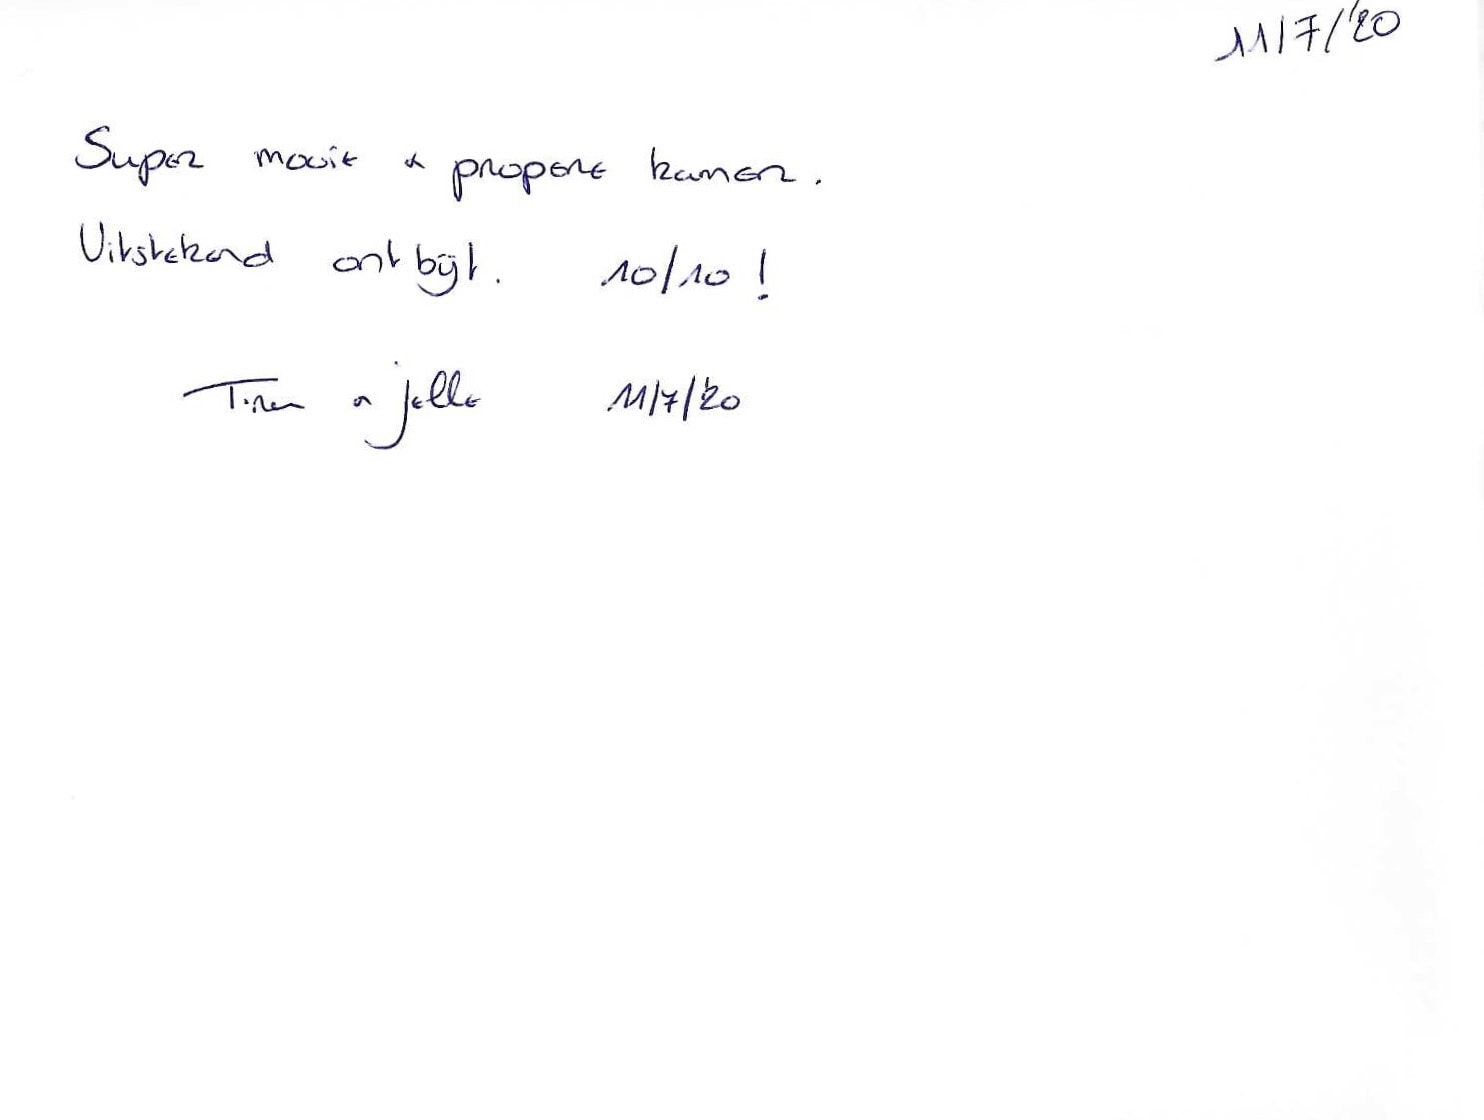 11/7/'20
Super mooie & propere kamer.
Uitstekend ontbijt. 10/10!
& Jelle 11/7/'20